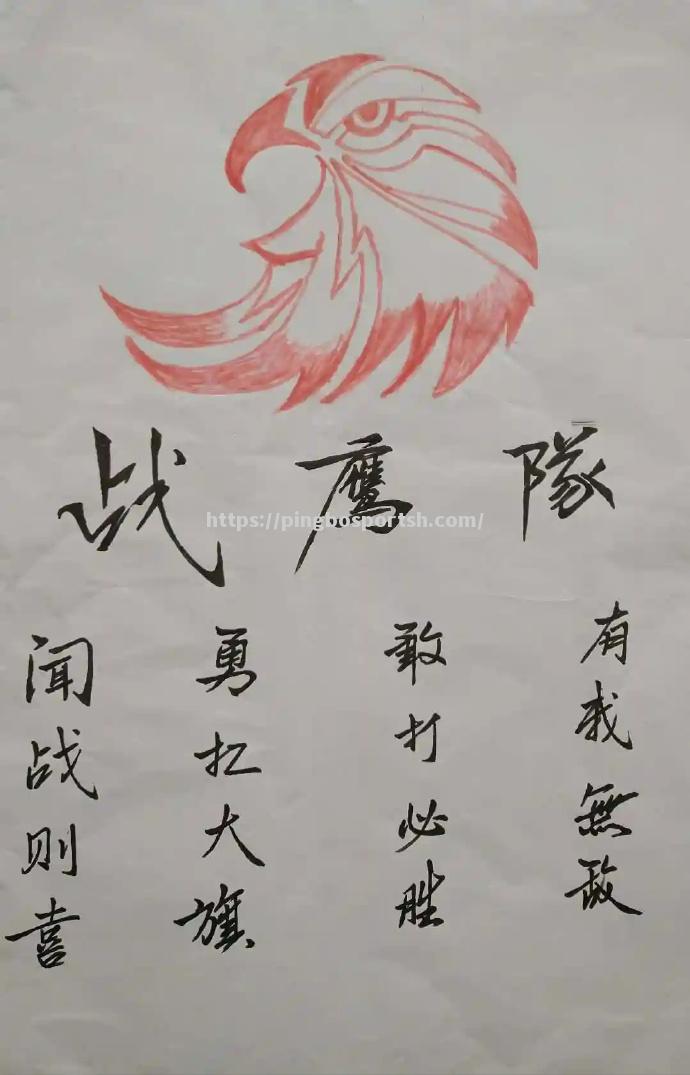 战鹰隊
https://pingbosportsh.com/
闻战则喜
勇扛大旗
敢打必胜
有我無敌